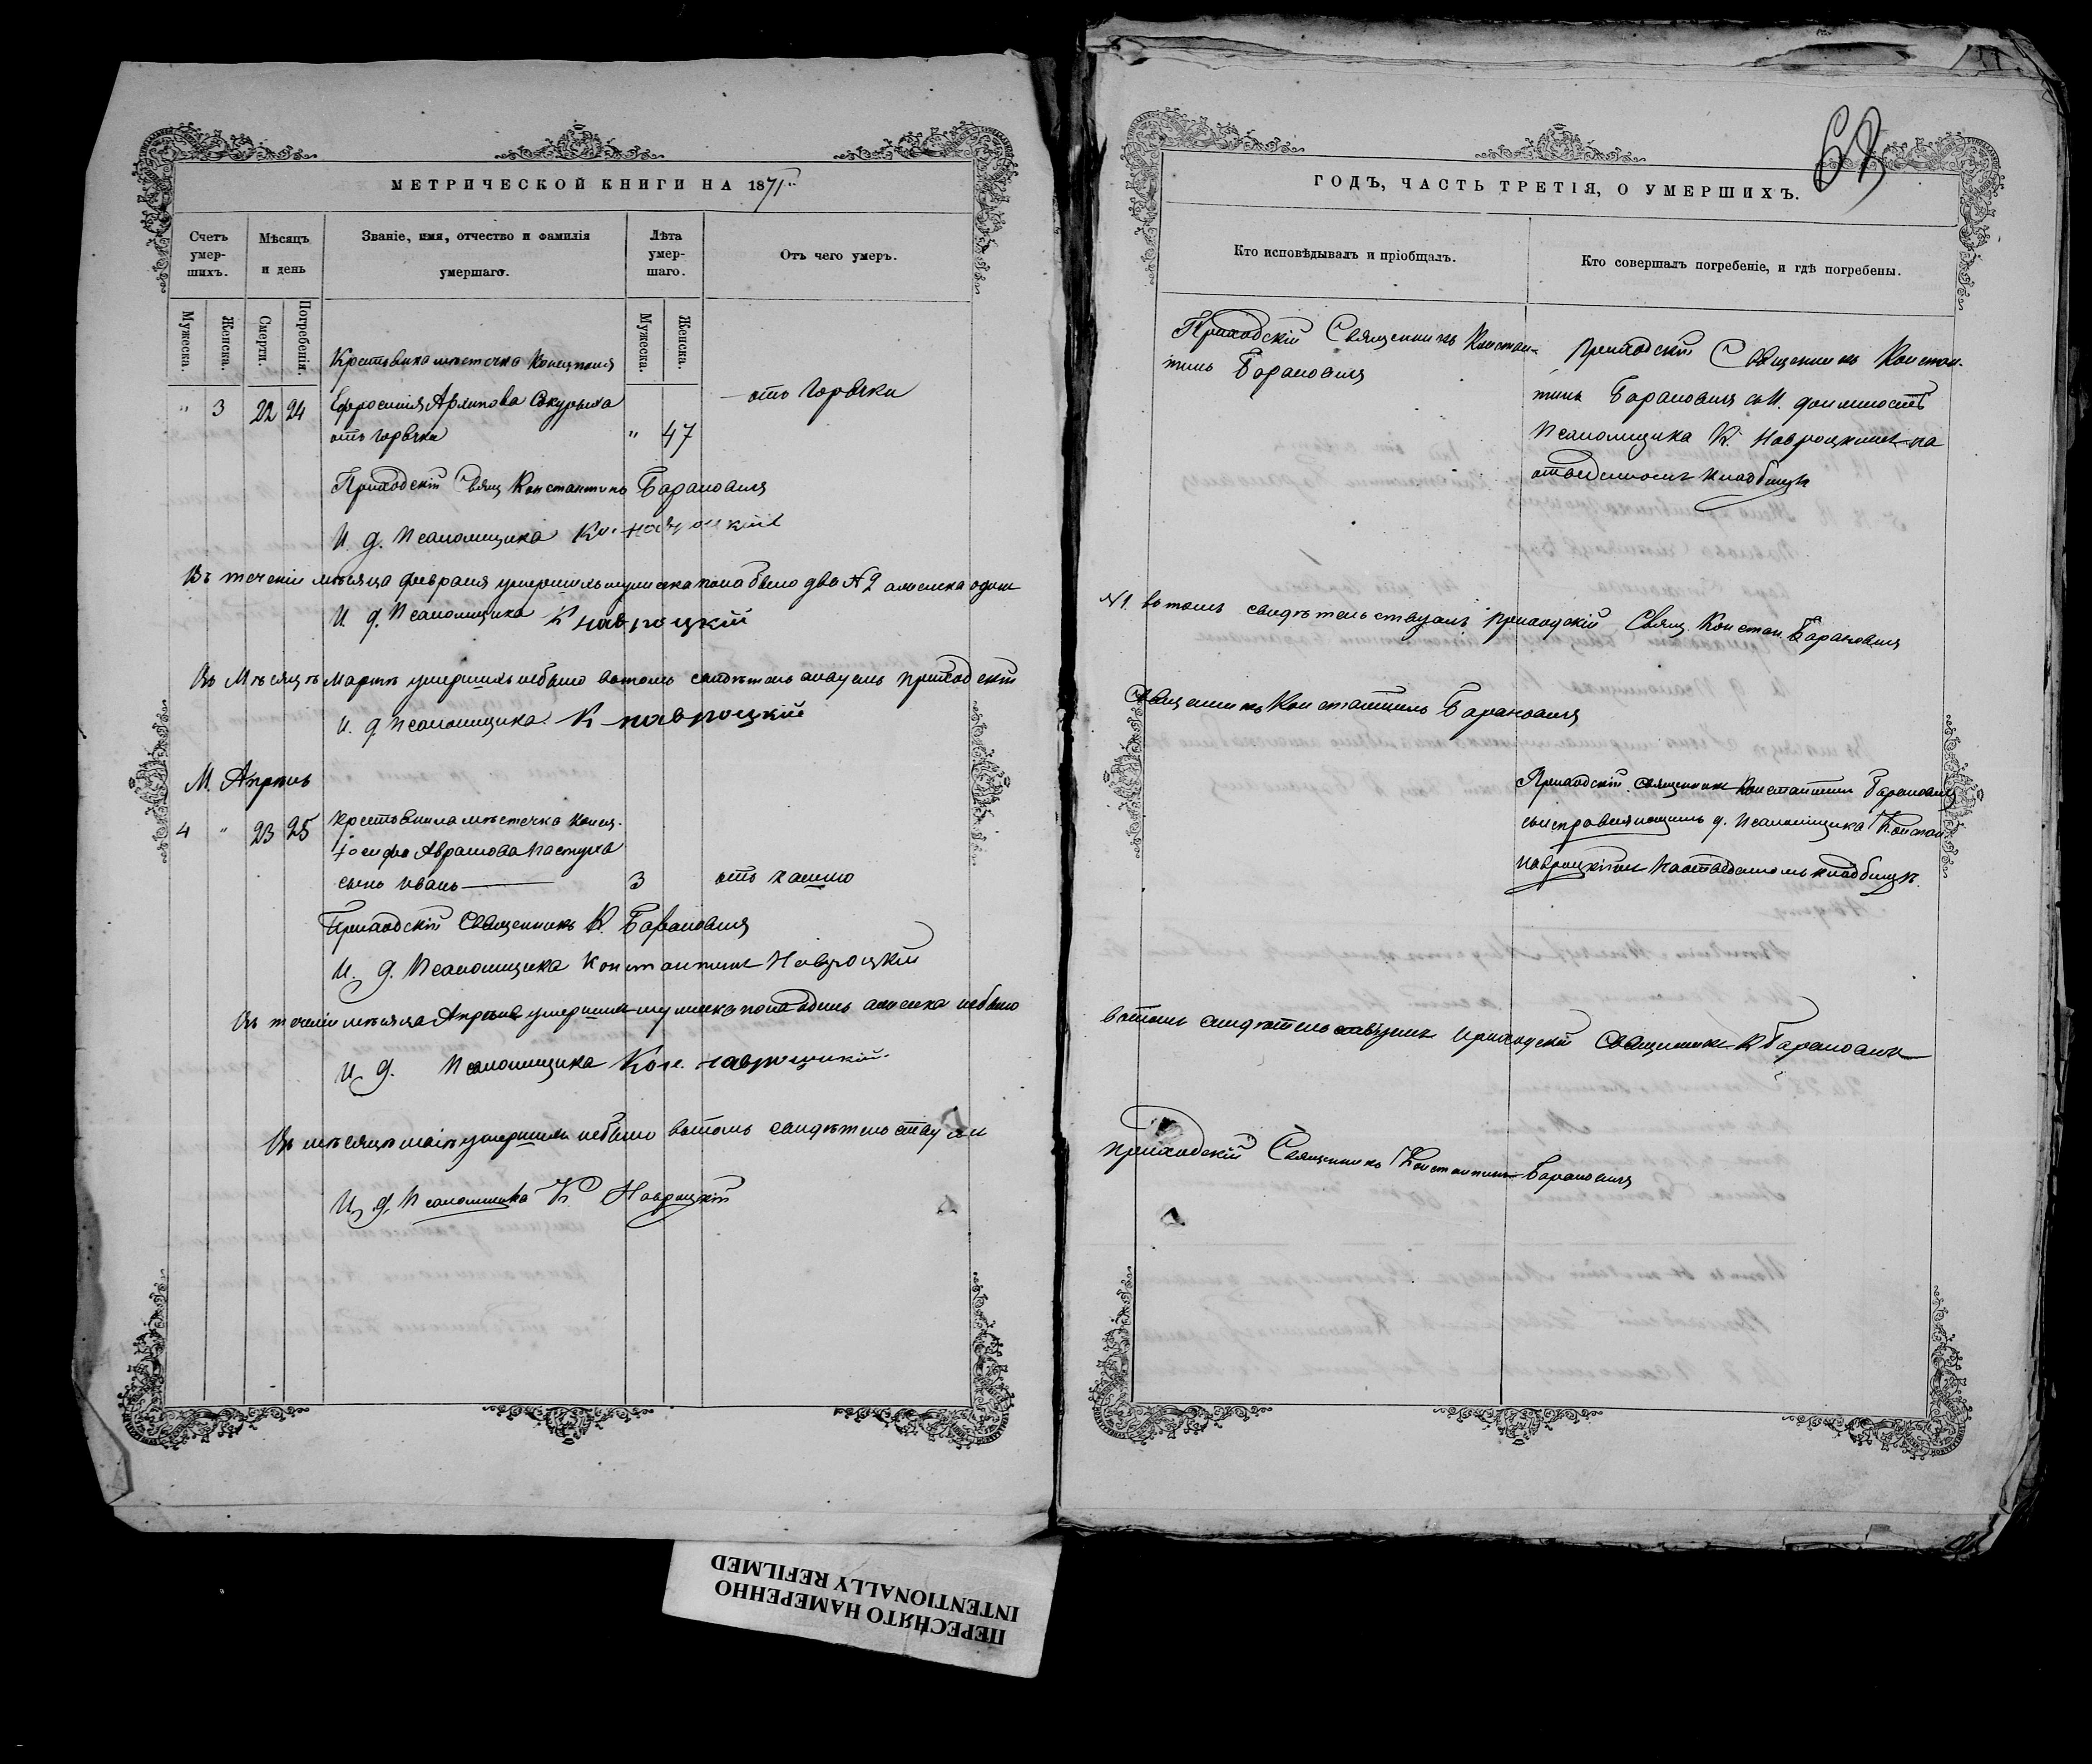 МЕТРИЧЕСКОЙ КНИГИ НА 1871
Счетъ умер-шихъ.
Мѣсяцъ и день
Званіе, имя, отчество и фамилія умершаго.
Лѣта умер-шаго.
Отъ чего умеръ.
Мужеска.
Женска.
Смерти.
Погребенія.
Мужеска.
Женска.
Крестьянка мѣстечка
" 3 22 24 Ефросинія Архипова " 47 отъ горячки
отъ горячки
Приходскій Свящ Константинъ Барановичъ
И. д. Псаломщика Ко. Навроцкій
Въ теченіи мѣсяца февраля умершихъ мужеска пола было два №2 а женска одна
И. д. Псаломщика К Навроцкій
Въ Мѣсяцѣ Мартѣ умершихъ небыло вътомъ свидѣтельствуемъ Приходскій
И. д Псаломщика К Навроцкій
М. Апрѣль
4 " 23 25 крестьянина мѣстечка
Іосифа Аврамова Пастуха
сынъ Иванъ 3 отъ кашлю
Приходскій Священникъ К. Барановичъ
И. д. Псаломщика Константинъ Навроцкій
Въ теченіи мѣсяца Апрѣля умершихъ мужеска пола одинъ а женска небыло
И. д. Псаломщика Кон. Навроцкій
Въ мѣсяцѣ маіѣ умершихъ небыло вътомъ свидѣтельствуемъ
И. д. Псаломщика К Навроцкій
ГОДЪ, ЧАСТЬ ТРЕТІЯ, О УМЕРШИХЪ.
Кто исповѣдывалъ и пріобщалъ.
Кто совершалъ погребеніе, и гдѣ погребены.
Приходскій Священникъ Констан-
тинъ Барановичъ
Приходскій Священникъ Констан-
тинъ Барановичъ съ И. должность
Псаломщика К. Навроцкимъ на
отведенномъ кладбищѣ
№1. вътомъ свидѣтельствуемъ Приходскій Свящ. Констан. Барановичъ
Священникъ Константинъ Барановичъ
Приходскій священникъ Константинъ Барановичъ
съ исправляющимъ д. Псаломщика Констан.
Навроцкимъ на отведенномъ кладбищѣ.
вътомъ свидѣтельствуемъ Приходскій Священникъ К Барановичъ
Приходскій Священникъ Константинъ Барановичъ
ПЕРЕСНЯТО НАМЕРЕННО
INTENTIONALLY REFILMED